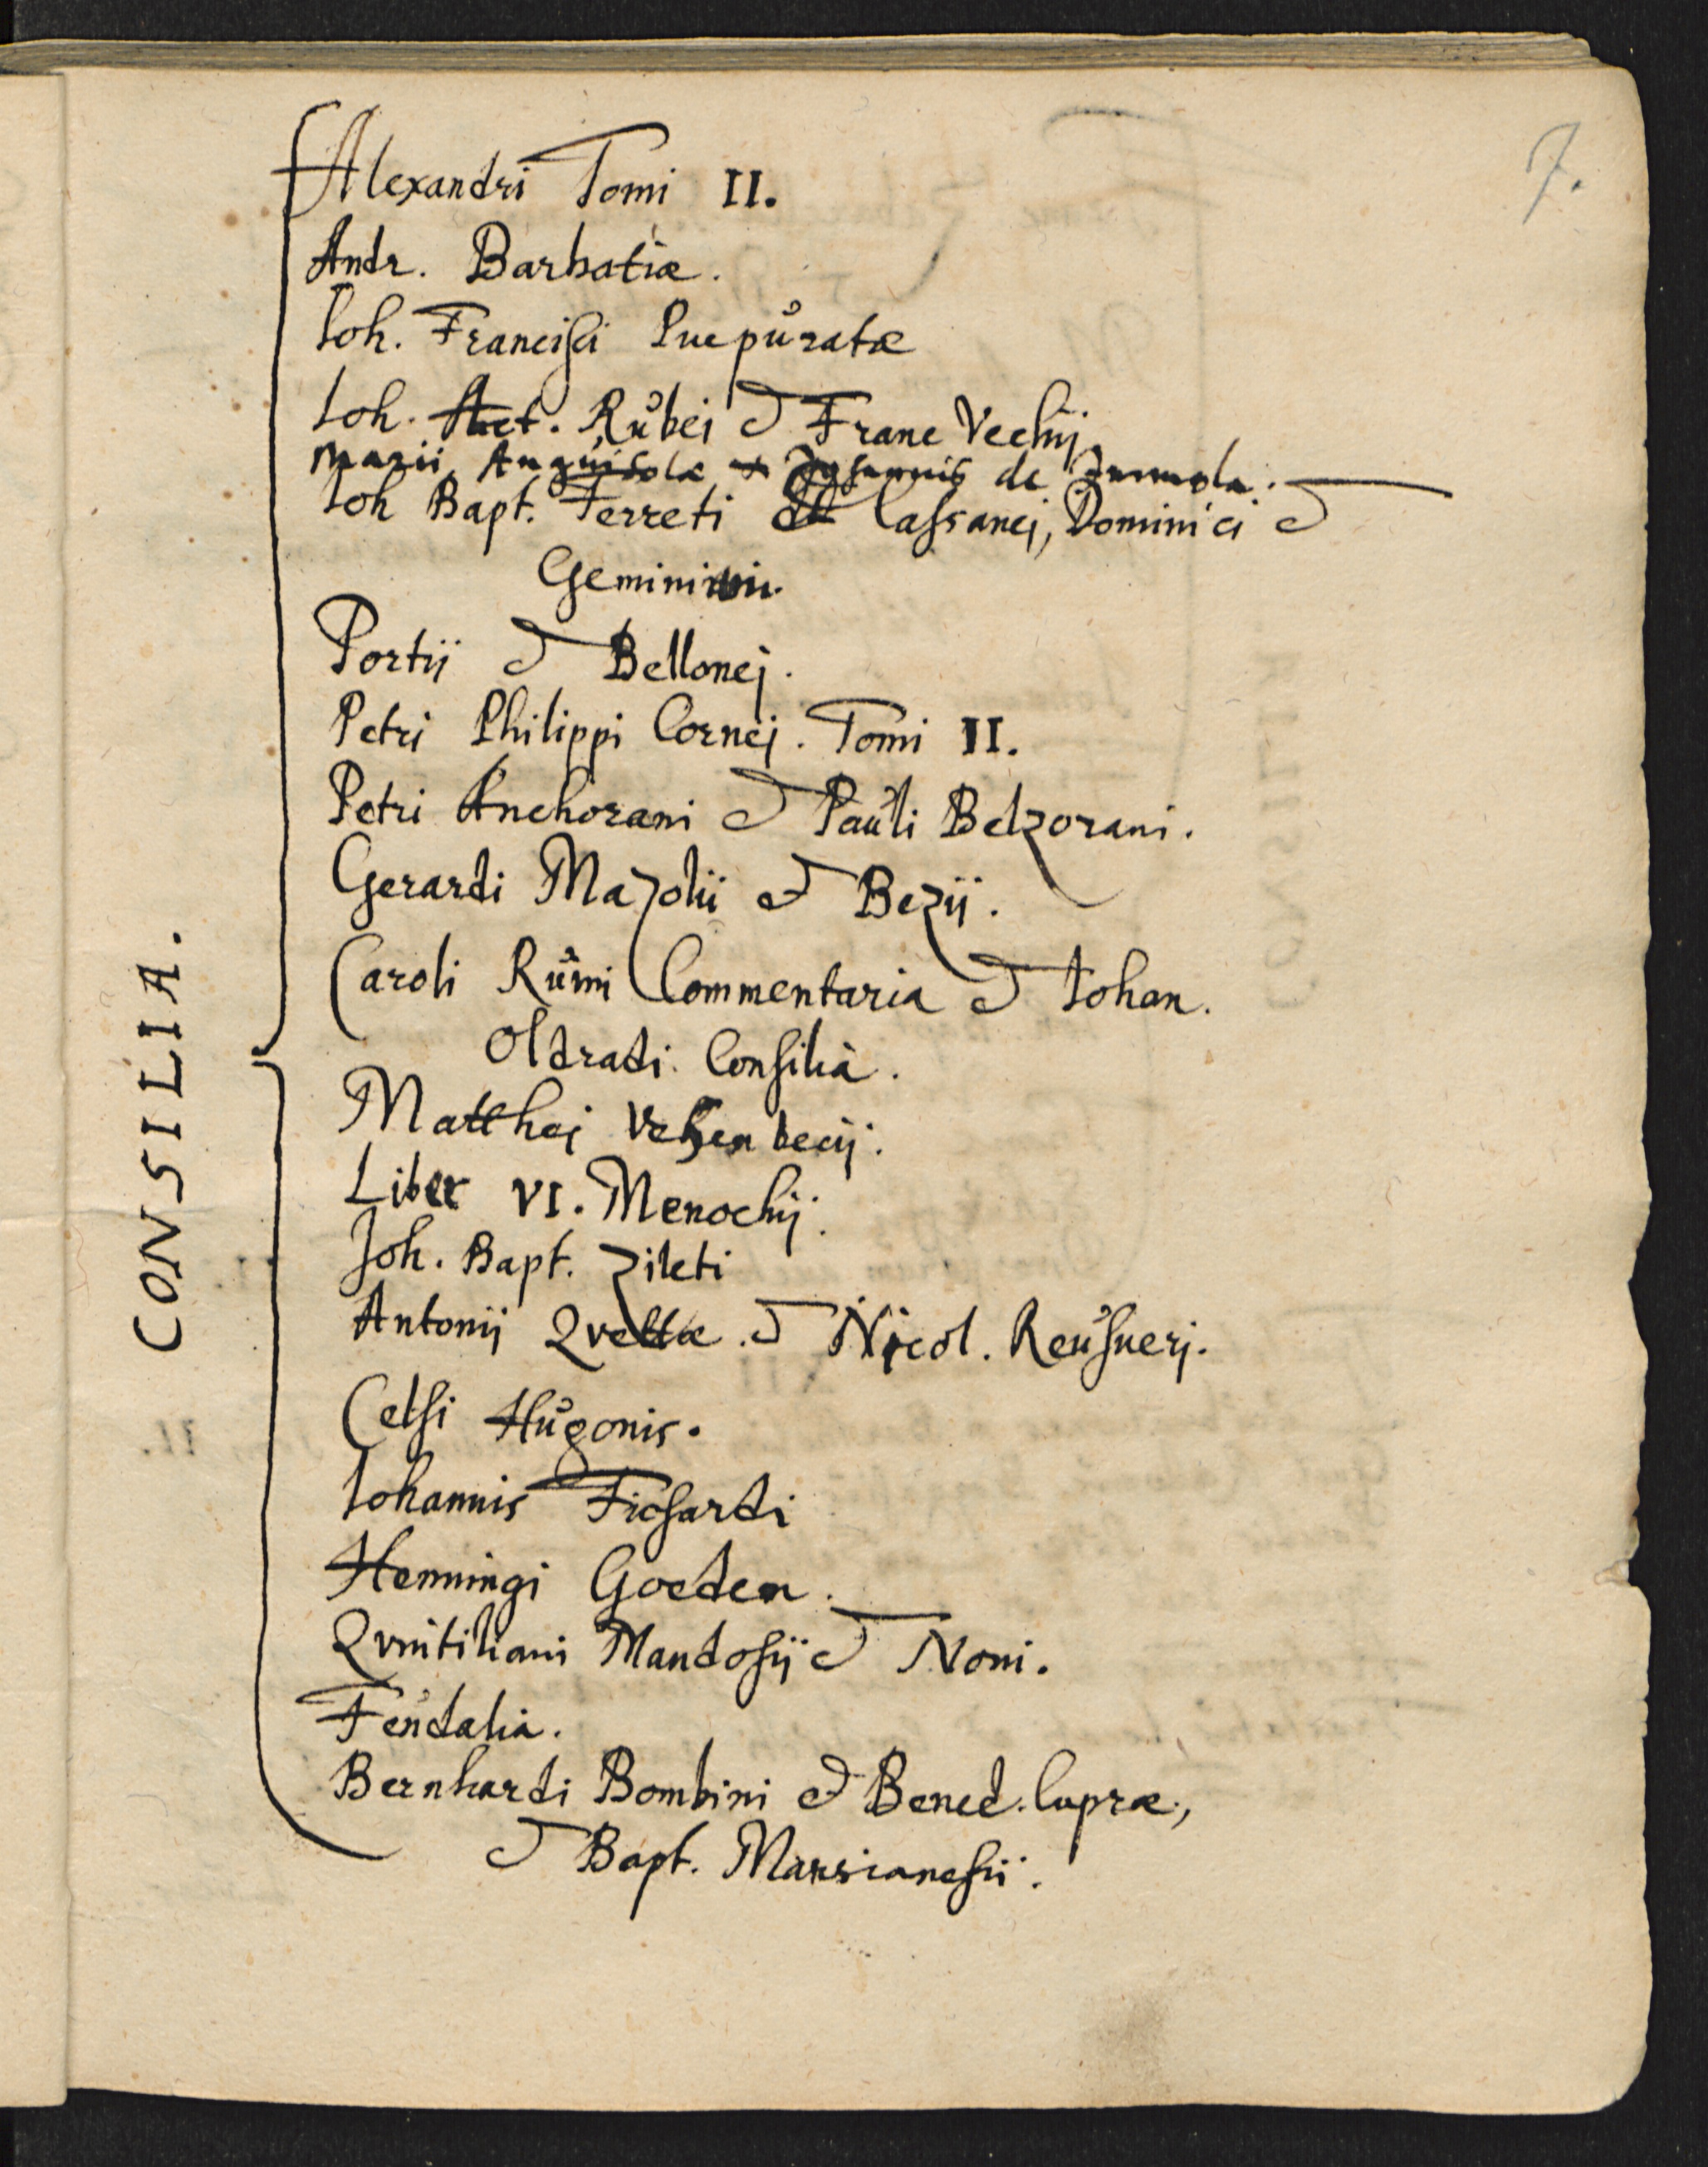 7.
CONSILIA.
Alexandri Tomi II.
Andr. Barbatiæ.
Ioh. Francisci Purpuratæ
Ioh. Ant. Rubei et Franc Vechij
Marii Anguisolæ et Johannis de Immola.
Ioh Bapt. Ferreti et Cassanej, Dominici et
Geminiani.
Portij et Bellonej.
Petri Philippi Cornej. Tomi II.
Petri Anchorani et Pauli Belzorani.
Gerardi Mazolii et Bezij.
Caroli Ruini Commentaria et Iohan.
Oldradi Consilia.
Matthej Vesenbecij.
Liber VI. Menochij.
Joh. Bapt. Zileti
Antonij Qvettæ. et Nicol. Reusnerj.
Celsi Hugonis.
Iohannis Fichardi
Henningi Goeden.
Qvintiliani Mandosij et Noni.
Feudalia.
Bernhardi Bombini et Bened. Capræ,
et Bapt. Marsianesii.